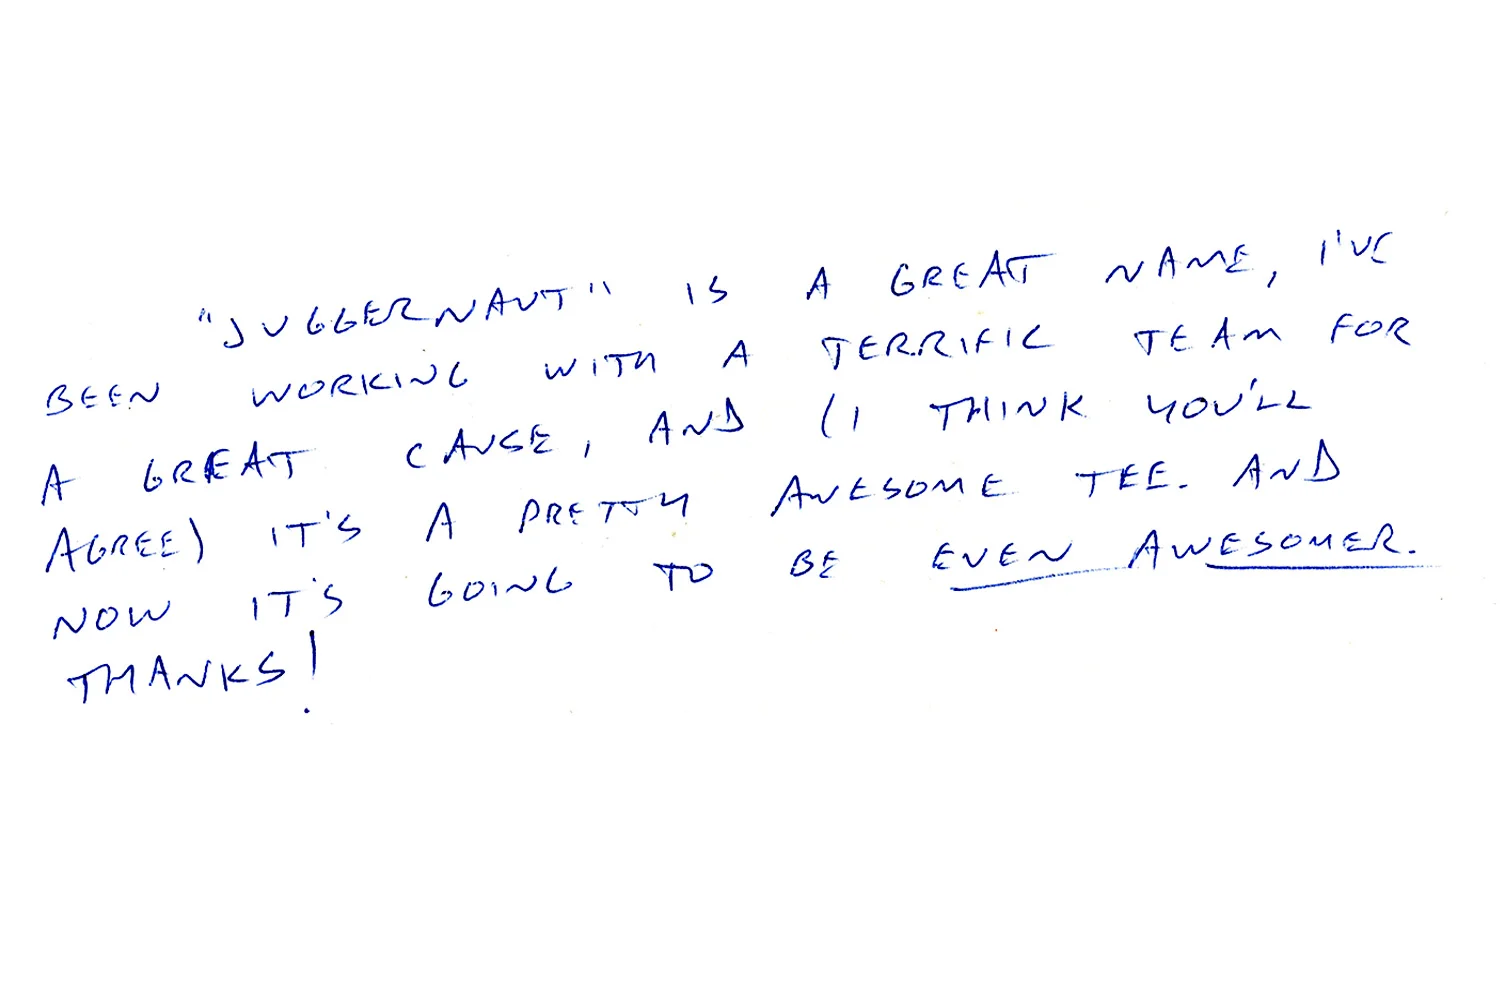 "JUGGERNAUT" IS A GREAT NAME, I'VE
BEEN WORKING WITH A TERRIFIC TEAM FOR
A GREAT CAUSE, AND (I THINK YOU'LL
AGREE) IT'S A PRETTY AWESOME TEE. AND
NOW IT'S GOING TO BE EVEN AWESOMER.
THANKS!